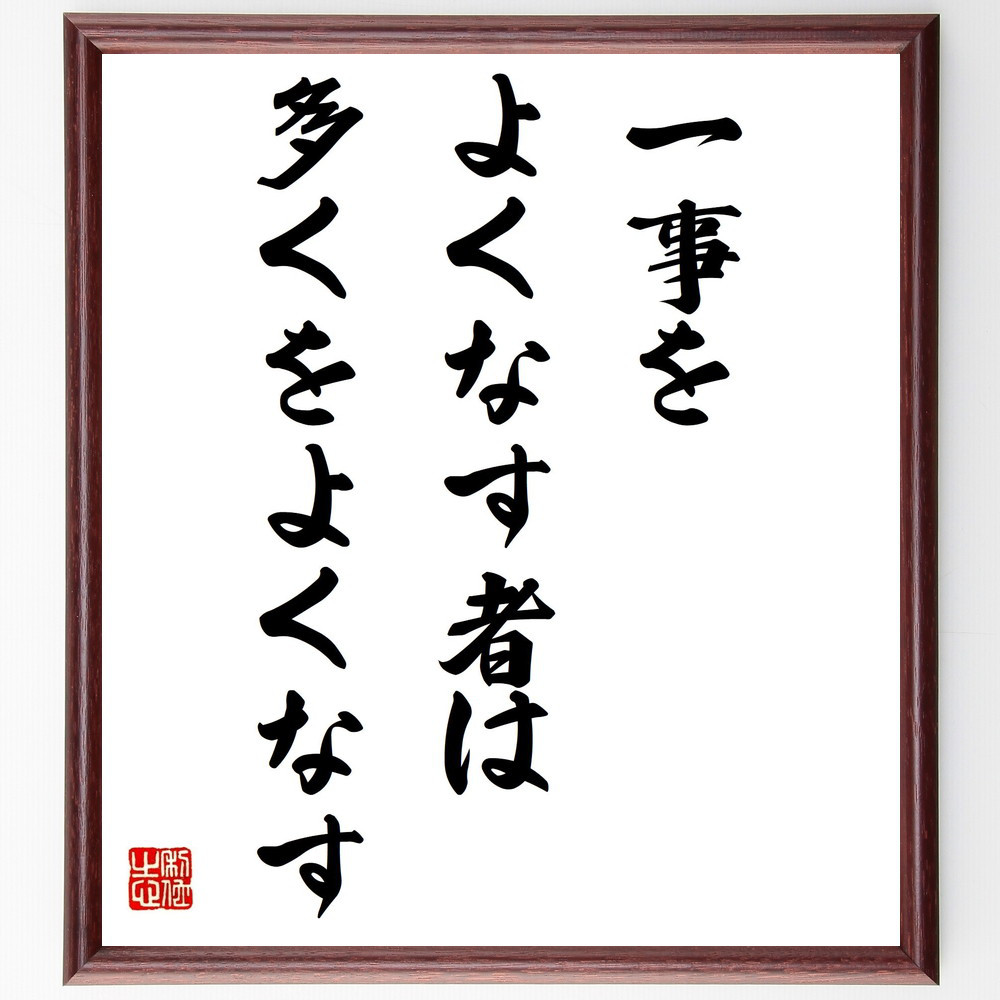 一事を
よくなす者は
多くをよくなす